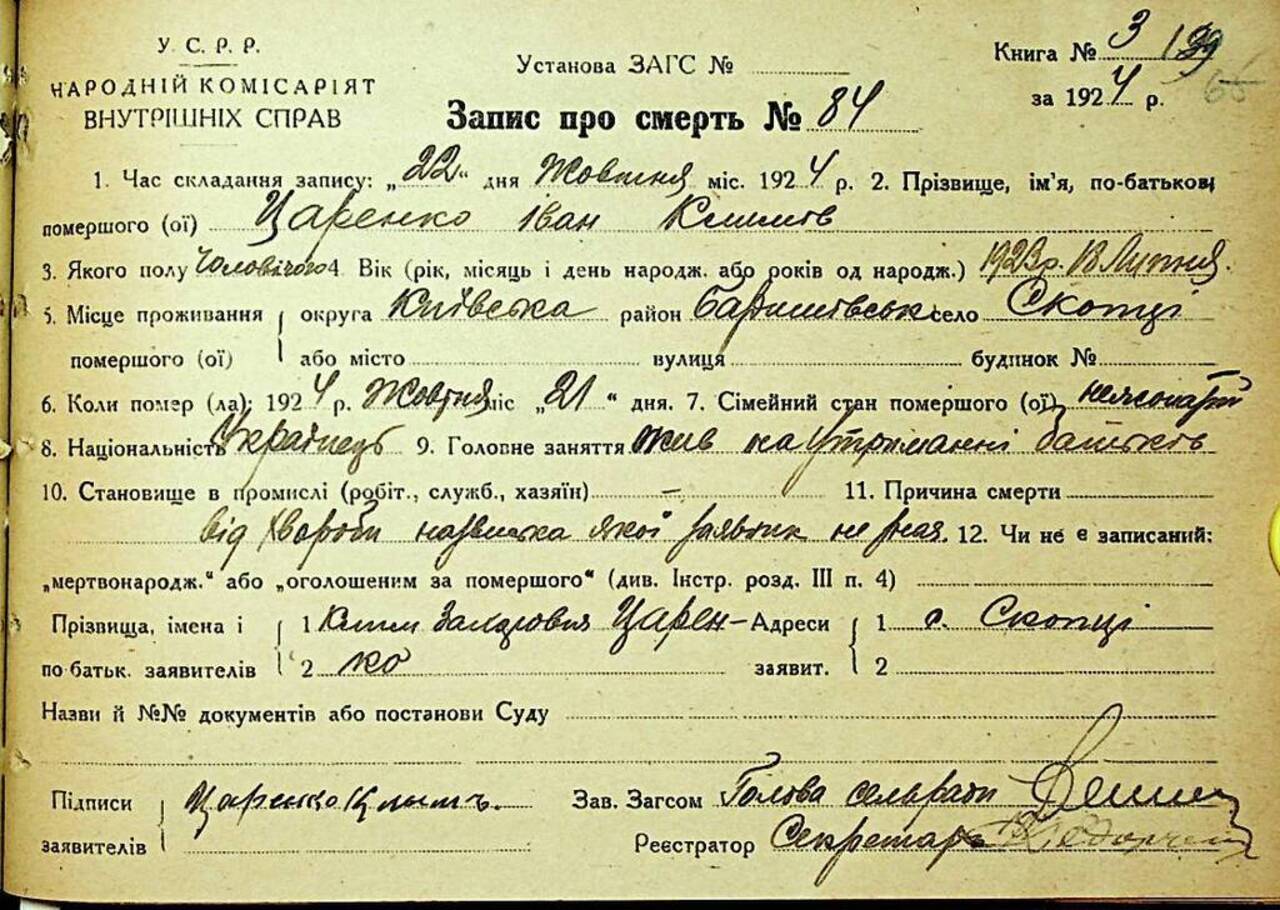 У. С. Р. Р.
НАРОДНІЙ КОМІСАРІЯТ
ВНУТРІШНІХ СПРАВ
Установа ЗАГС №
Книга № 3 139
66
за 1924 р.
Запис про смерть № 84
1. Час складання запису: „22“ дня Жовтня міс. 1924 р. 2. Прізвище, ім'я, по-батькові
помершого (ої) Царенко Іван Климов
3. Якого полу Чоловічого 4. Вік (рік, місяць і день народж. або років од народж.) 1923 р. 18 Липня.
5. Місце проживання округа Київська район Баришівськ село Скопці
помершого (ої) або місто вулиця будинок №
6. Коли помер (ла): 1924 р. Жовтня міс „21“ дня. 7. Сімейний стан помершого (ої)
8. Національність Українець 9. Головне заняття жив на утриманні батьків
10. Становище в промислі (робіт., служб., хазяїн) — 11. Причина смерти
від хвороби назвиська якої заявник не зная. 12. Чи не є записаний:
„мертвонародж.“ або „оголошеним за помершого“ (див. Інстр. розд. III п. 4)
Прізвища, імена і 1 Клим Захаровия Царен- Адреси 1 с. Скопці
по батьк. заявителів 2 ко заявит. 2
Назви й №№ документів або постанови Суду
Підписи Царенко Клымъ. Зав. Загсом Голова сельради
заявителів Реєстратор Секретарь